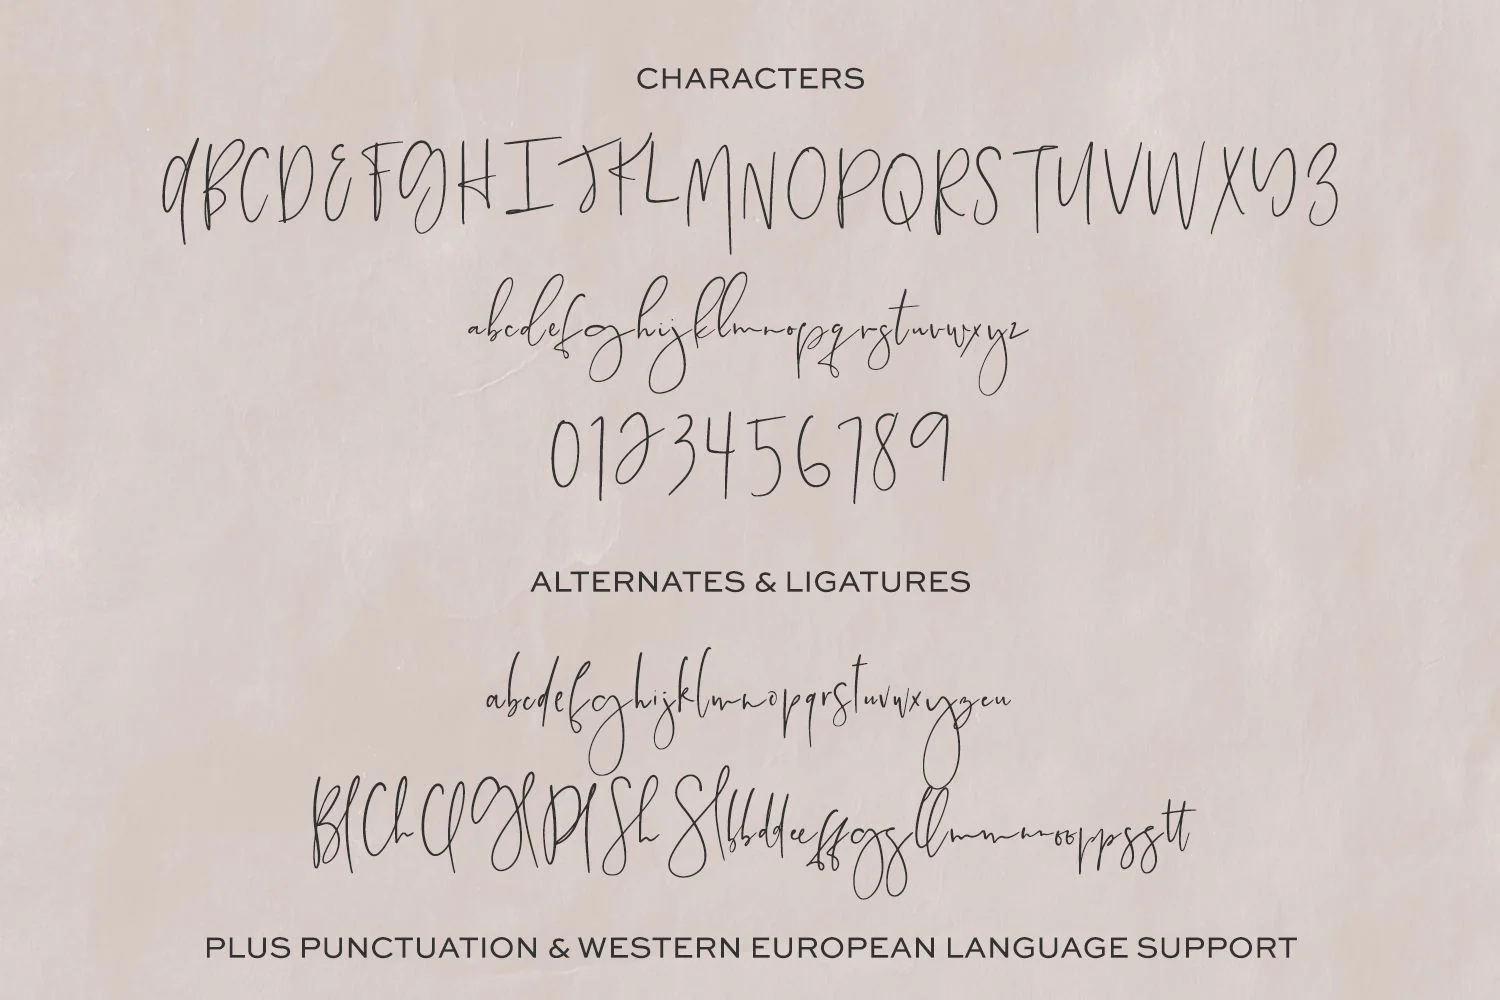 CHARACTERS
ABCDEFGHIJKLMNOPQRSTUVWXYZ
abcdefghijklmnopqrstuvwxyz
0123456789
ALTERNATES & LIGATURES
abcdefghijklmnopqrstuvwxyzeu
BlChClGlPlShSlbbddeeffggllmmnnooppsstt
PLUS PUNCTUATION & WESTERN EUROPEAN LANGUAGE SUPPORT